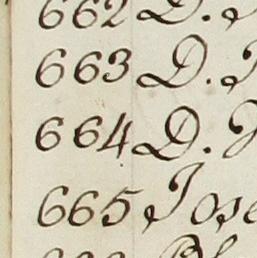 662 D.
663 D.
664 D.
665 Jose